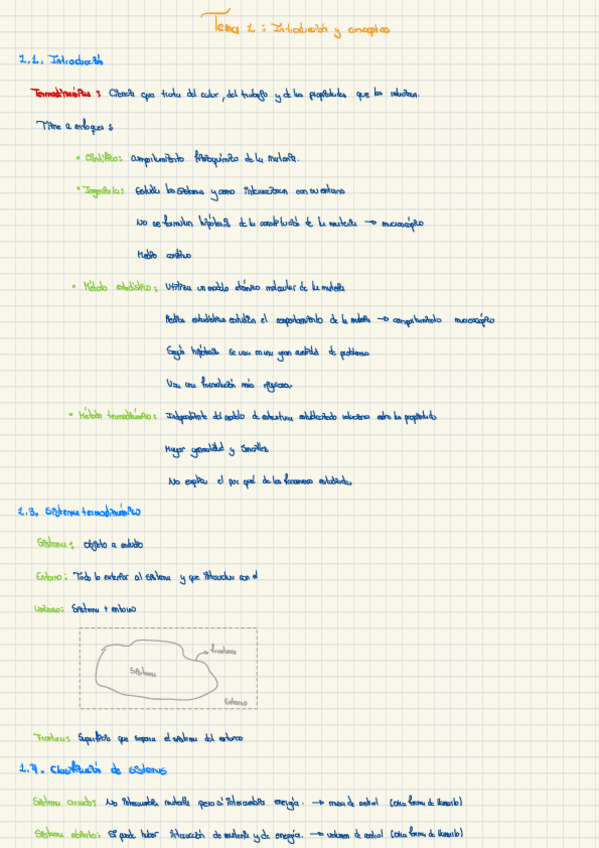 Tema 1: Introducción y conceptos
1.1. Introducción
Termodinámica: Ciencia que trata del calor, del trabajo y de las propiedades que los relacionan.
Tiene 2 enfoques:
• Científico: comportamiento fisicoquímico de la materia.
• Ingeniería: Estudia los sistemas y como interaccionan con su entorno
No se formulan hipótesis de la constitución de la materia → macroscópico
Medio continuo
• Método estadístico: Utiliza un modelo atómico molecular de la materia
estadística el comportamiento de la materia → comportamiento macroscópico
hipótesis se usa en una gran cantidad de problemas
Usa una formulación más rigurosa
• Método termodinámico: Independiente del modelo de estructura estableciendo relaciones entre las propiedades
Mayor generalidad y sencillez
No explica el por qué de los fenómenos estudiados
1.3. Sistema termodinámico
Sistema: Objeto a estudio
Entorno: Todo lo exterior al sistema y que interactua con el
Universo: Sistema + entorno
frontera
Sistema
Entorno
Frontera: Superficie que separa el sistema del entorno
1.4. Clasificación de sistemas
Sistema cerrado: No intercambia materia pero si intercambia energía. → masa de control (otra forma de llamarlo)
Sistema abierto: Si puede haber interacción de materia y de energía. → volumen de control (otra forma de llamarlo)